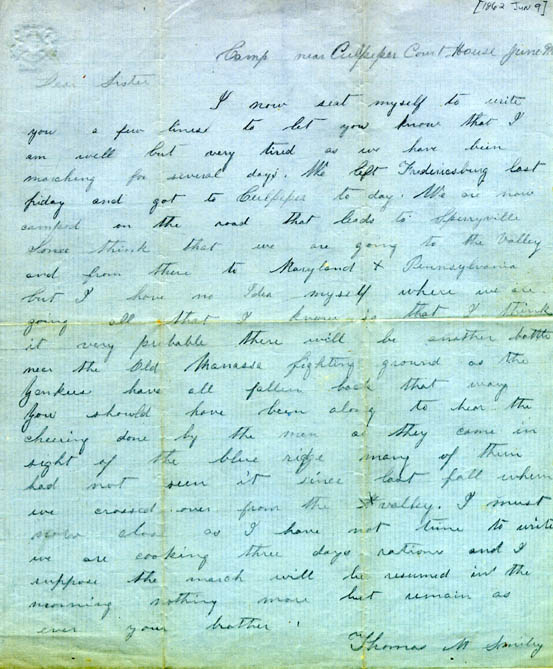 [1862 Jun 9]
Camp near Culpeper Court House June
Dear Sister
I now seat myself to write
you a few lines to let you know that I
am well but very tired as we have been
marching for several days. We left Fredericsburg last
friday and got to Culpeper to day. We are now
camped on the road that leads to Sperryville
Some think that we are going to the Valley
and from there to Maryland & Pennsylvania
but I have no Idea myself where we are
going all that I know is that I think
it very probable there will be another battle
near the Old Manassa fighting ground as the
Yankees have all fallen back that way
You should have been along to hear the
cheering done by the men as they came in
sight of the blue ridge many of them
had not seen it since last fall when
we crossed over from the valley. I must
now close as I have not time to write
we are cooking three days rations and I
suppose the march will be resumed in the
morning nothing more but remain as
ever your brother
Thomas M Smiley